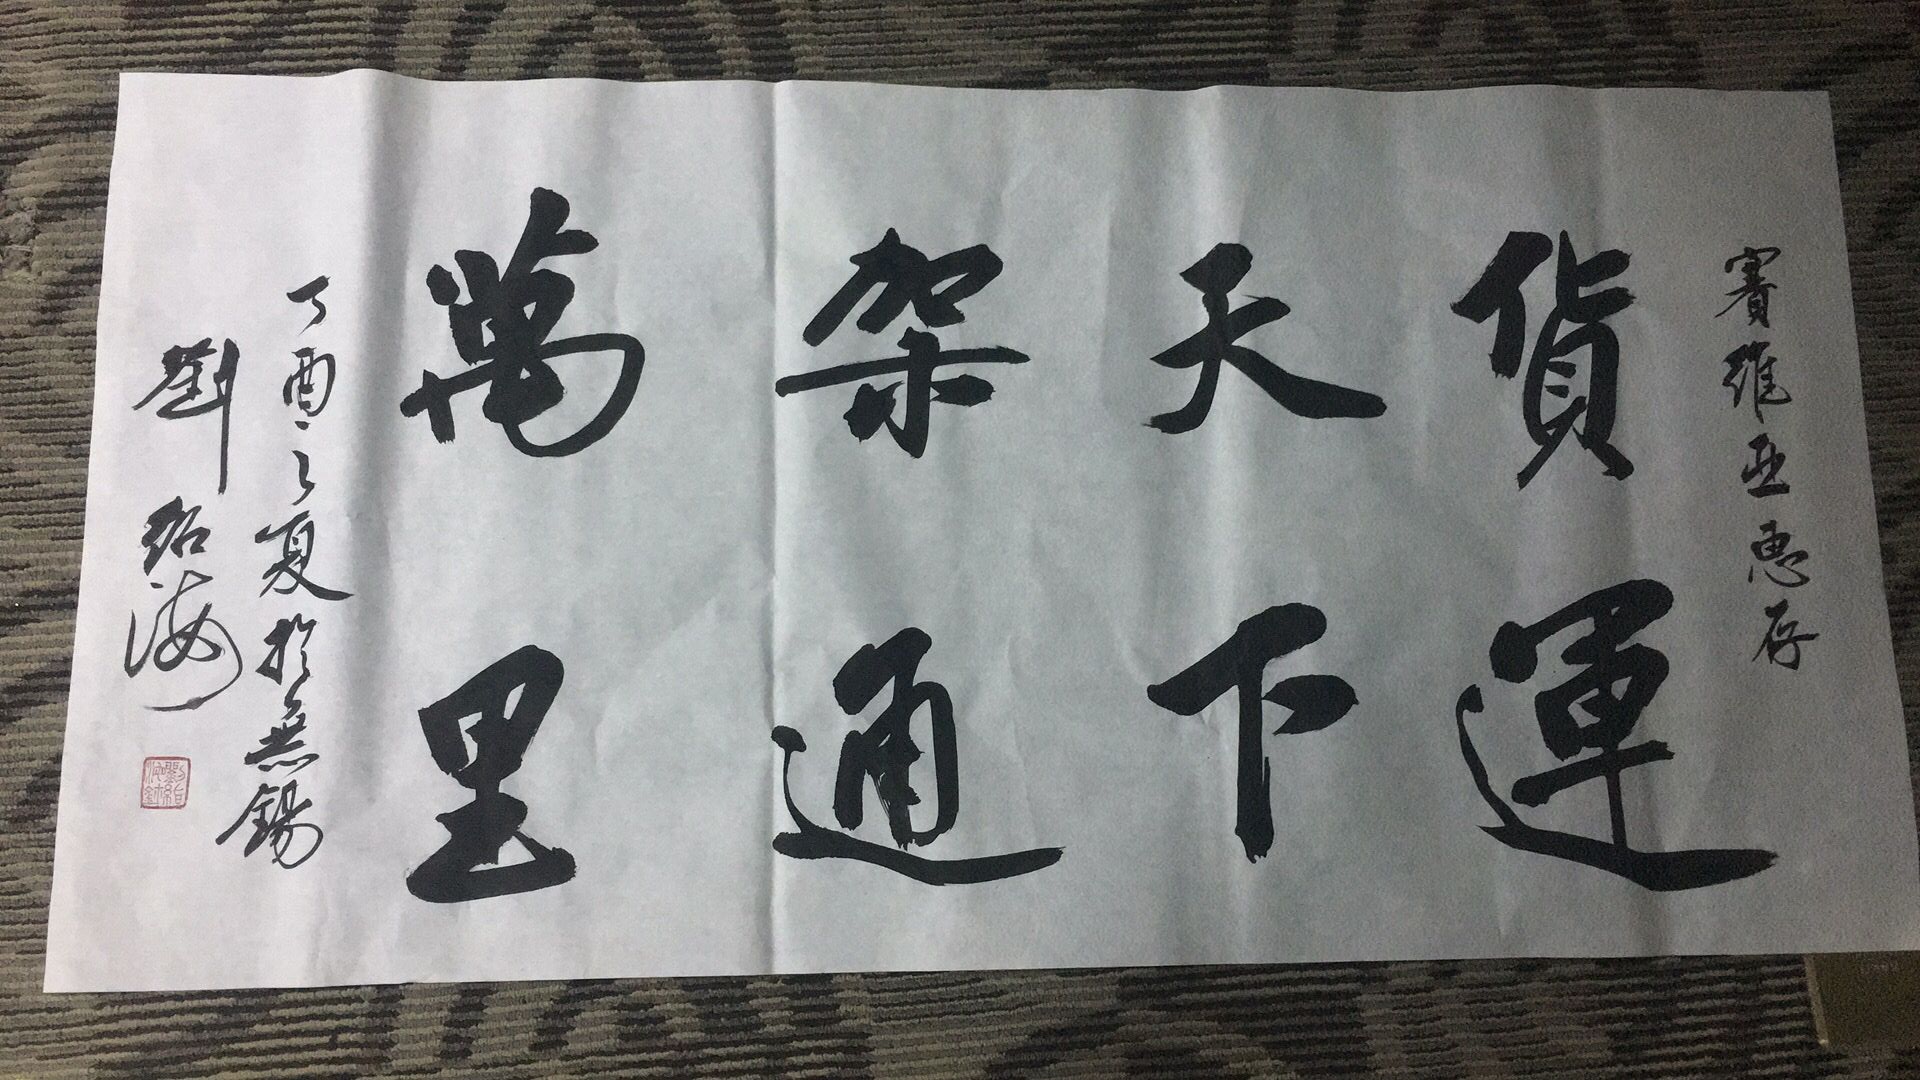 賽維亚惠存
貨運
天下
架通
萬里
丁酉之夏於無錫
劉紹海